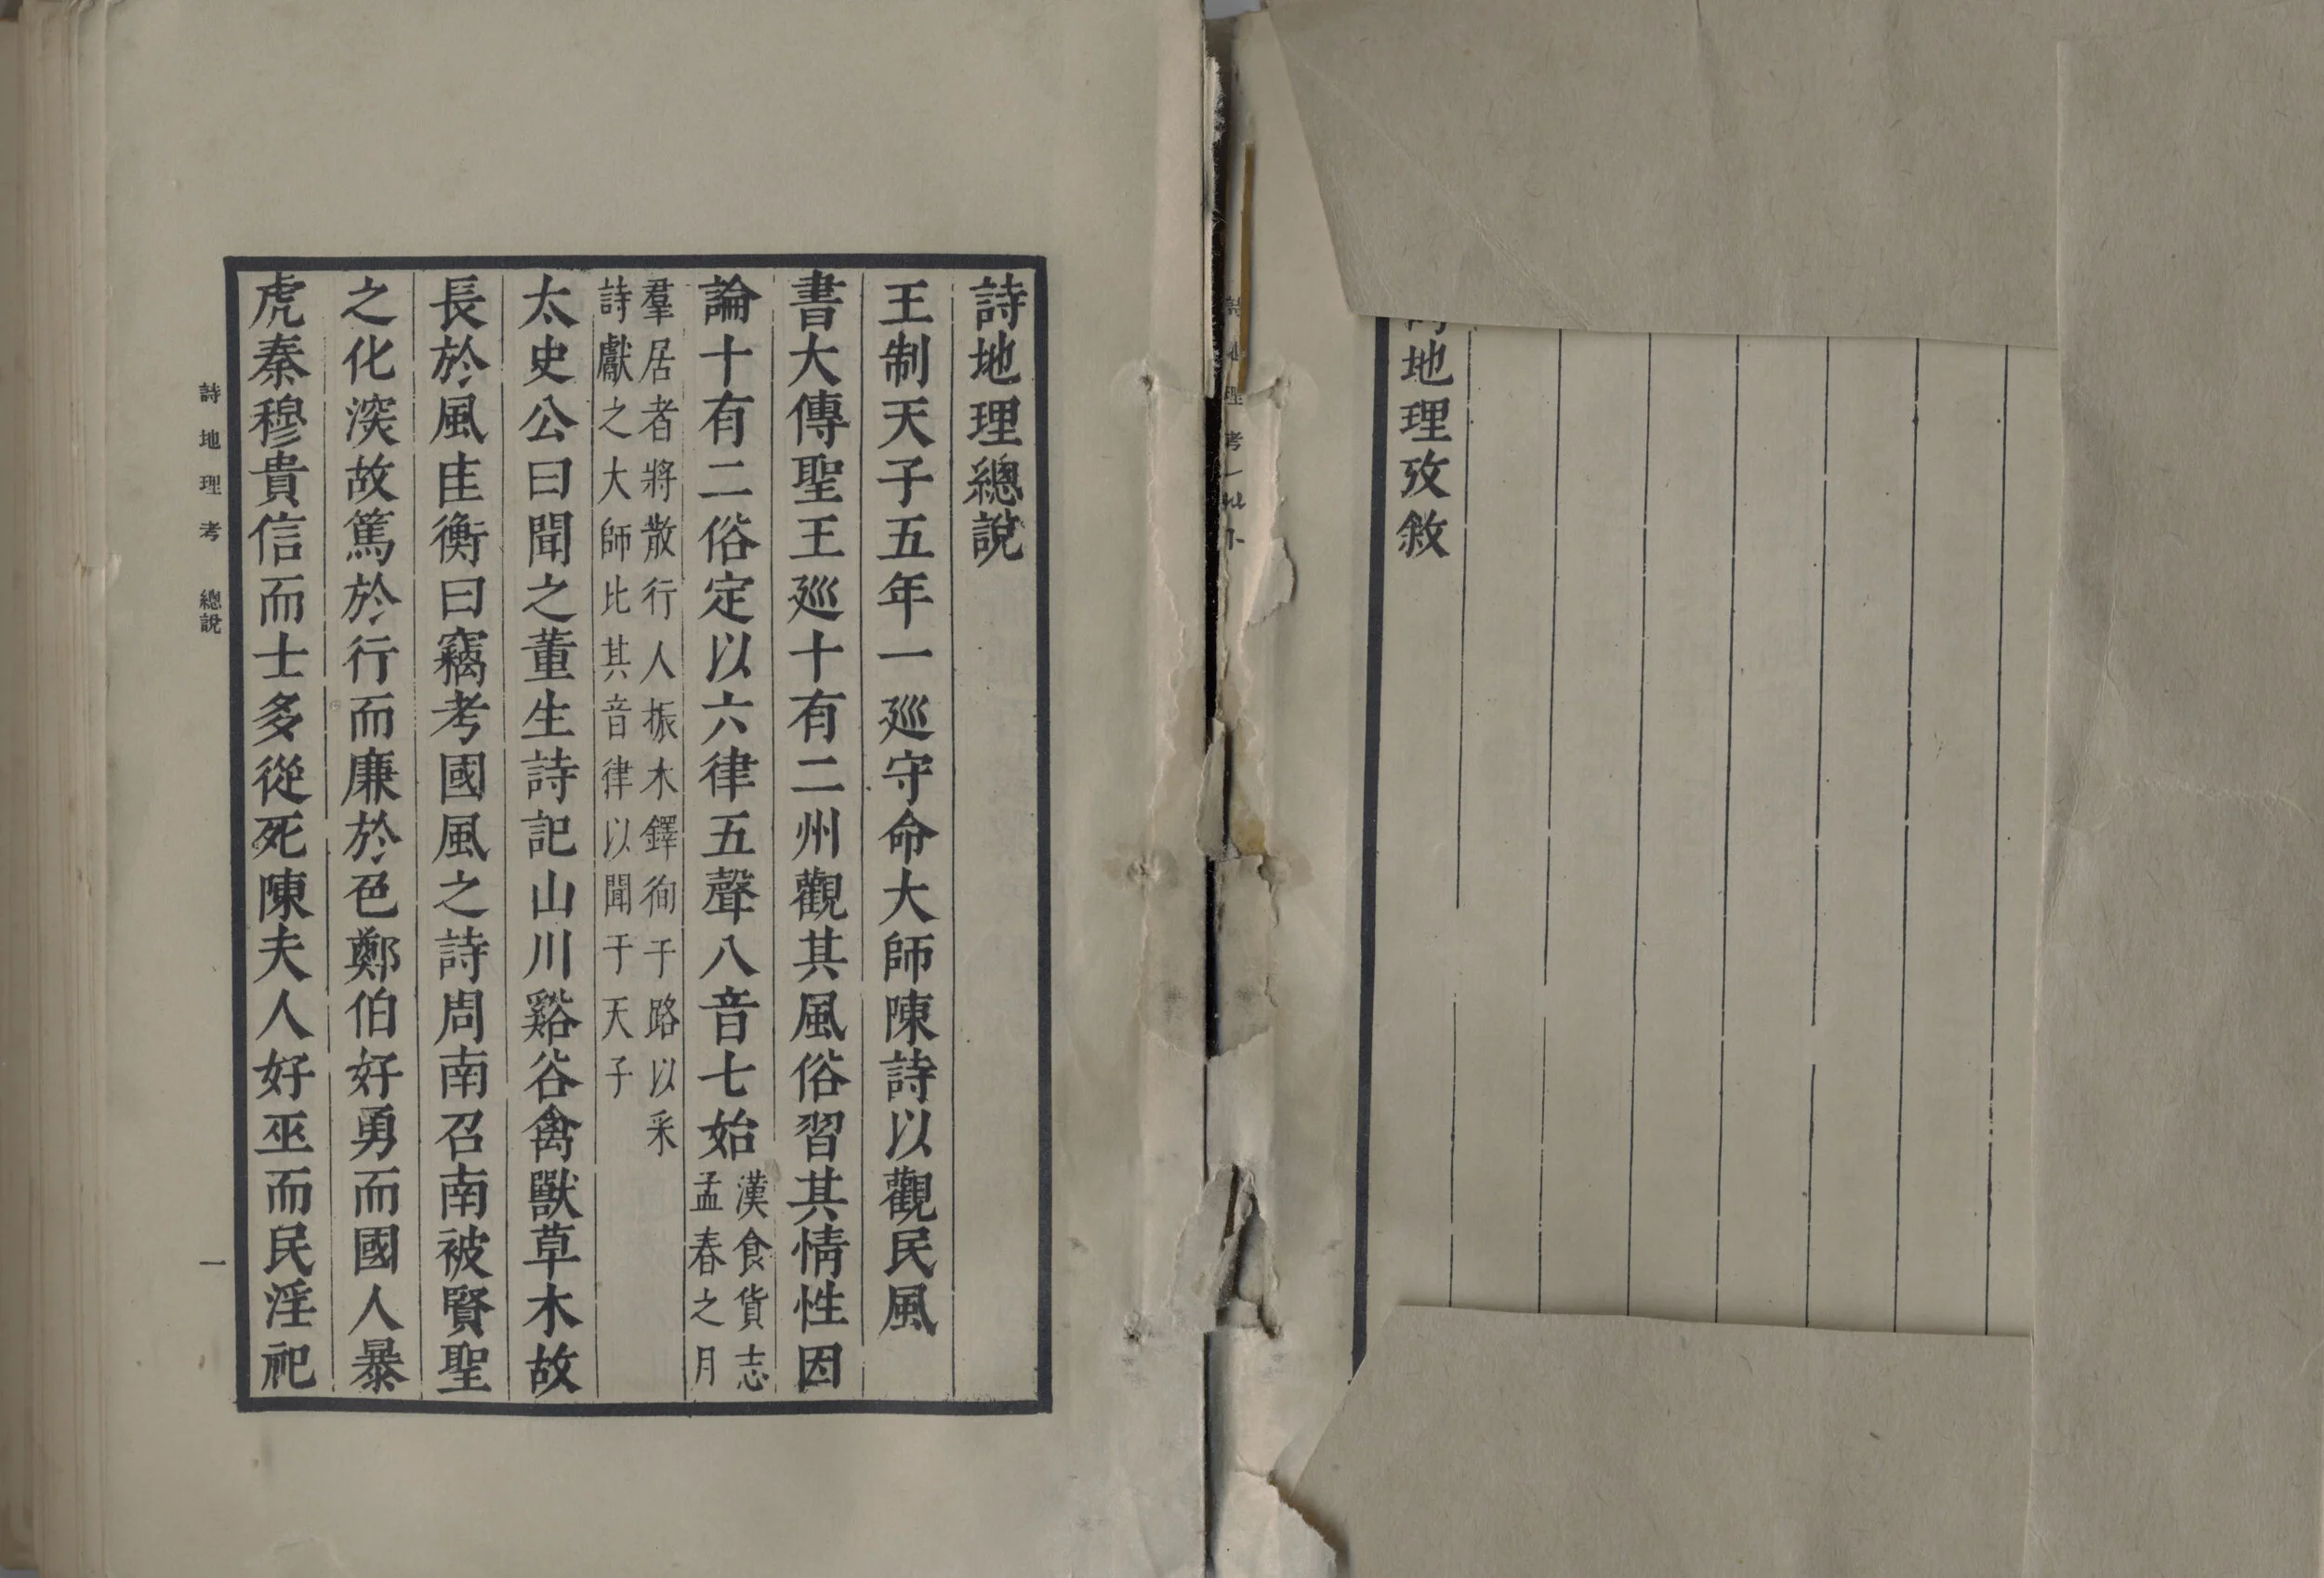 地理攷敘
詩地理總說
王制天子五年一巡守命大師陳詩以觀民風
書大傳聖王巡十有二州觀其風俗習其情性因
論十有二俗定以六律五聲八音七始
漢食貨志
孟春之月
羣居者將散行人振木鐸徇于路以采
詩獻之大師比其音律以聞于天子
太史公曰聞之董生詩記山川谿谷禽獸草木故
長於風匡衡曰竊考國風之詩周南召南被賢聖
之化深故篤於行而廉於色鄭伯好勇而國人暴
虎秦穆貴信而士多從死陳夫人好巫而民淫祀
詩地理考 總說
一